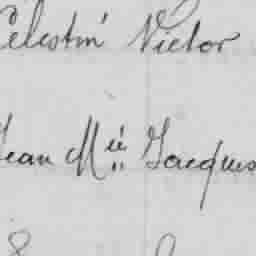 Célestin Victor
Jean Mie Jacques